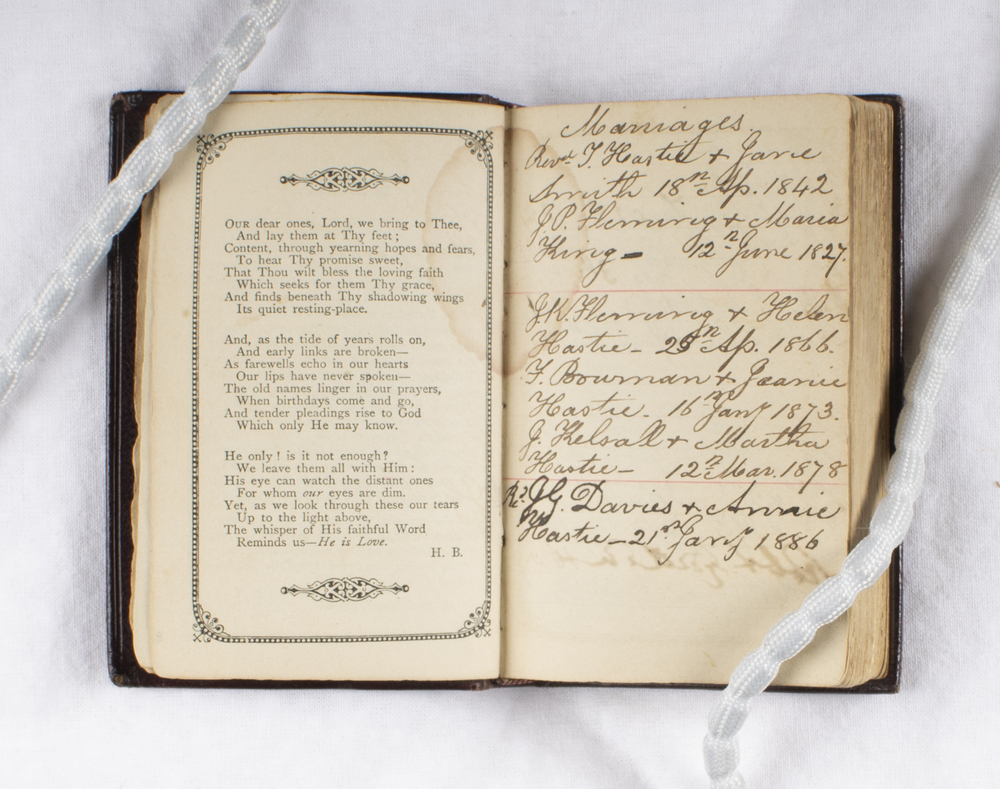 OUR dear ones, Lord, we bring to Thee,
And lay them at Thy feet;
Content, through yearning hopes and fears,
To hear Thy promise sweet,
That Thou wilt bless the loving faith
Which seeks for them Thy grace,
And finds beneath Thy shadowing wings
Its quiet resting-place.
And, as the tide of years rolls on,
And early links are broken—
As farewells echo in our hearts
Our lips have never spoken—
The old names linger in our prayers,
When birthdays come and go,
And tender pleadings rise to God
Which only He may know.
He only! is it not enough?
We leave them all with Him:
His eye can watch the distant ones
For whom our eyes are dim.
Yet, as we look through these our tears
Up to the light above,
The whisper of His faithful Word
Reminds us—He is Love.
H. B.
Marriages.
Revd T. Hastie & Jane
Smith 18th Ap. 1842
J. P. Fleming & Maria
King— 12th June 1827.
J. K. Fleming & Helen
Hastie— 25th Ap. 1866.
T. Bowman & Jeanie
Hastie. 16th Jany 1873.
J. Kelsall & Martha
Hastie— 12th Mar. 1878
J. G. Davies & Annie
Hastie—21st Jany 1886